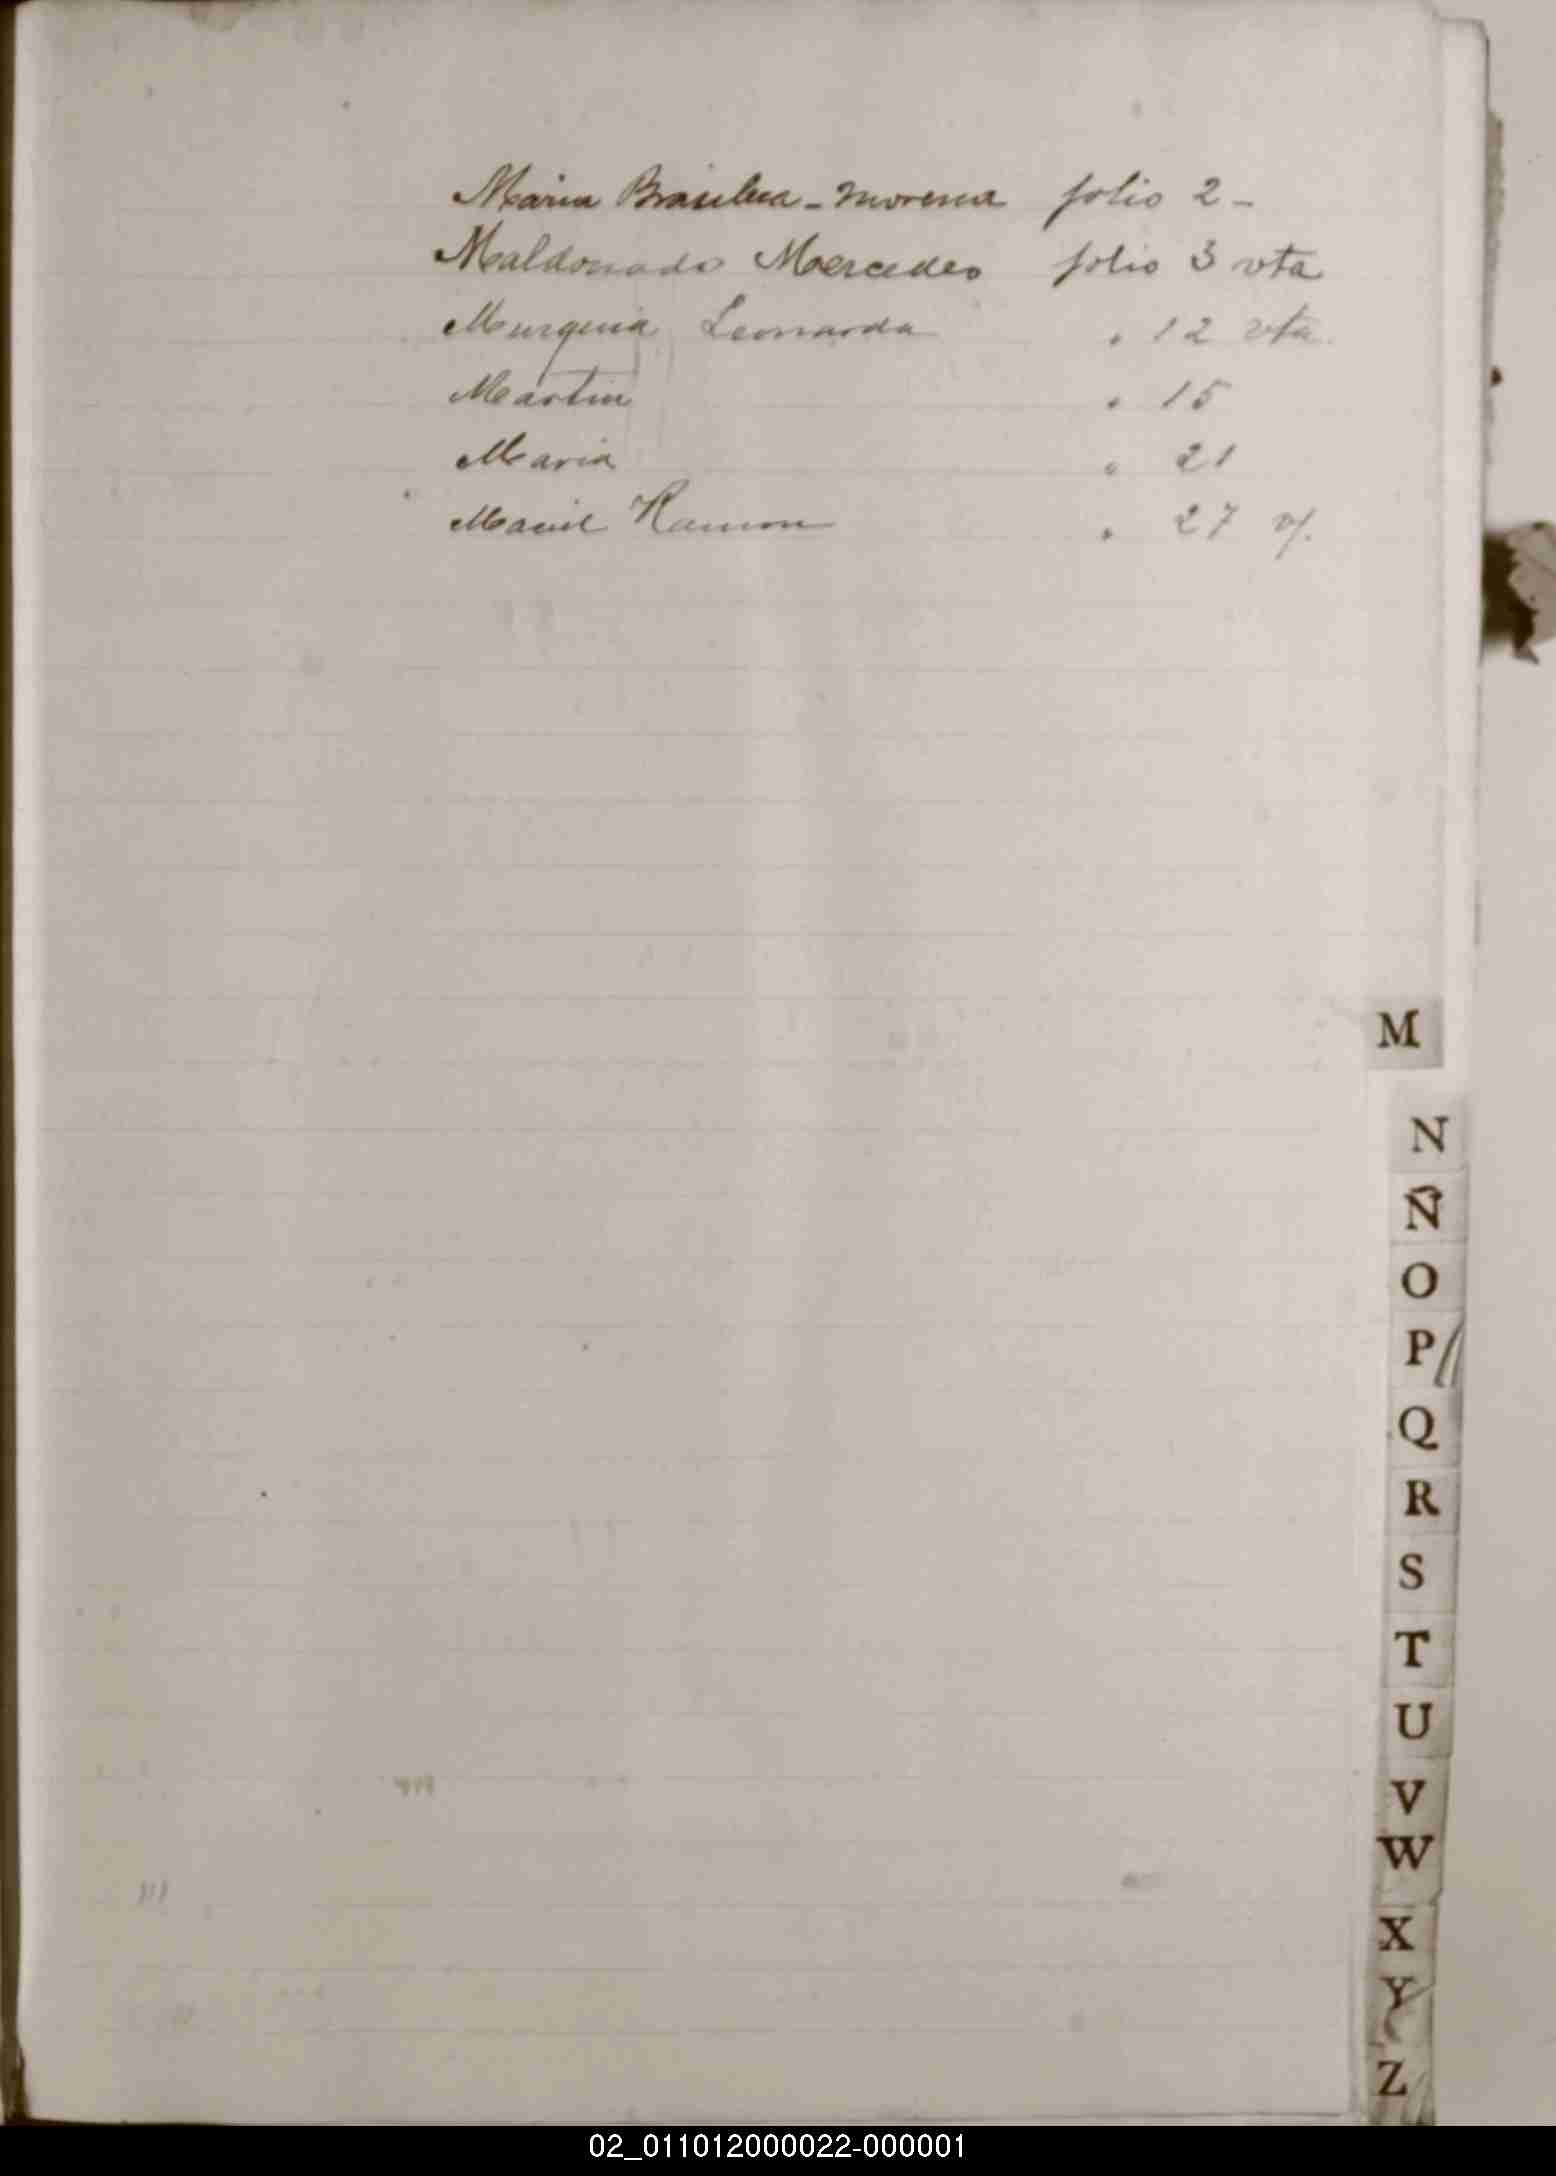 Maria Brasilea - Morena folio 2 -
Maldonado Mercedes folio 3 vta
Murguia Leonarda " 12 vta.
Martin " 15
Maria " 21
Maciel Ramon " 27 v/.
M
N
Ñ
O
P
Q
R
S
T
U
V
W
X
Y
Z
02_011012000022-000001